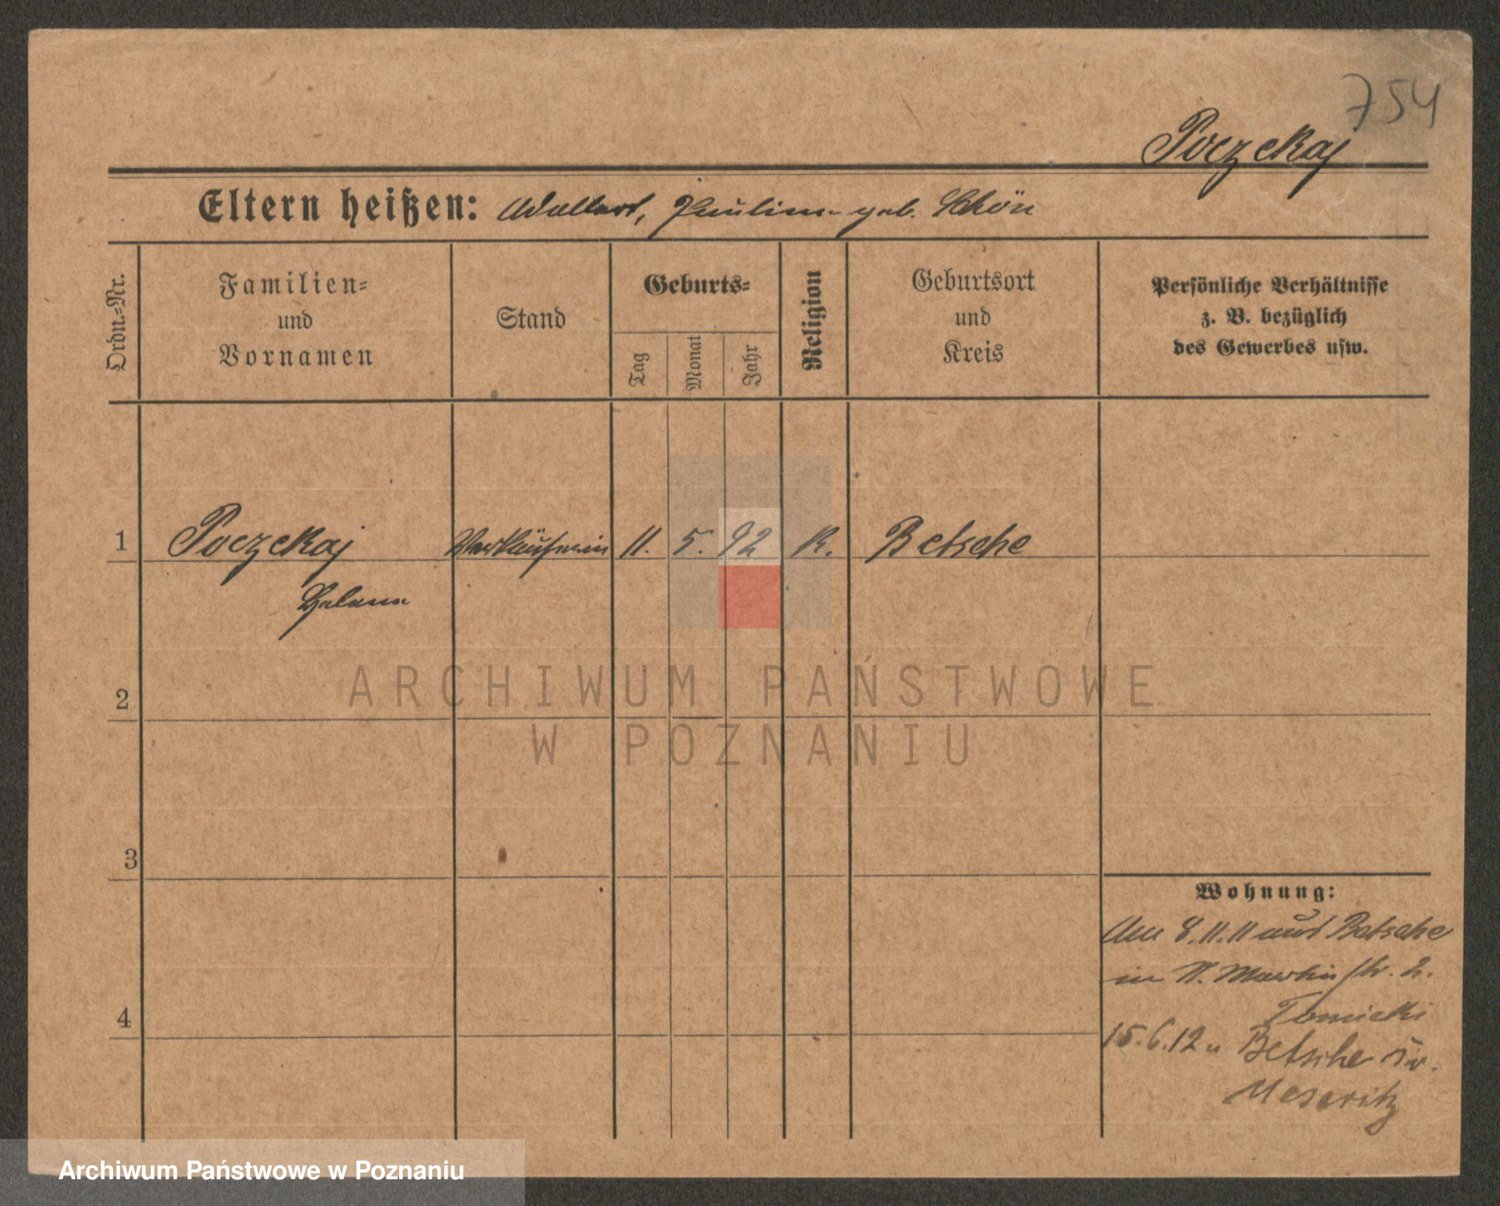 754
Poczekaj
Eltern heißen: Adalbert, Pauline geb. Schön
Ordn.-Nr.
Familien-
und
Vornamen
Stand
Geburts-
Tag
Monat
Jahr
Religion
Geburtsort
und
Kreis
Persönliche Verhältnisse
z. B. bezüglich
des Gewerbes usw.
1 Poczekaj Verkäuferin 11. 5. 92 K. Betsche
Helene
2
3
4
Wohnung:
8.11.11 aus Betsche
in St. Martin str. 2.
Tomicki
15.6.12 n Betsche Kr.
Meseritz
ARCHIWUM PAŃSTWOWE
W POZNANIU
Archiwum Państwowe w Poznaniu